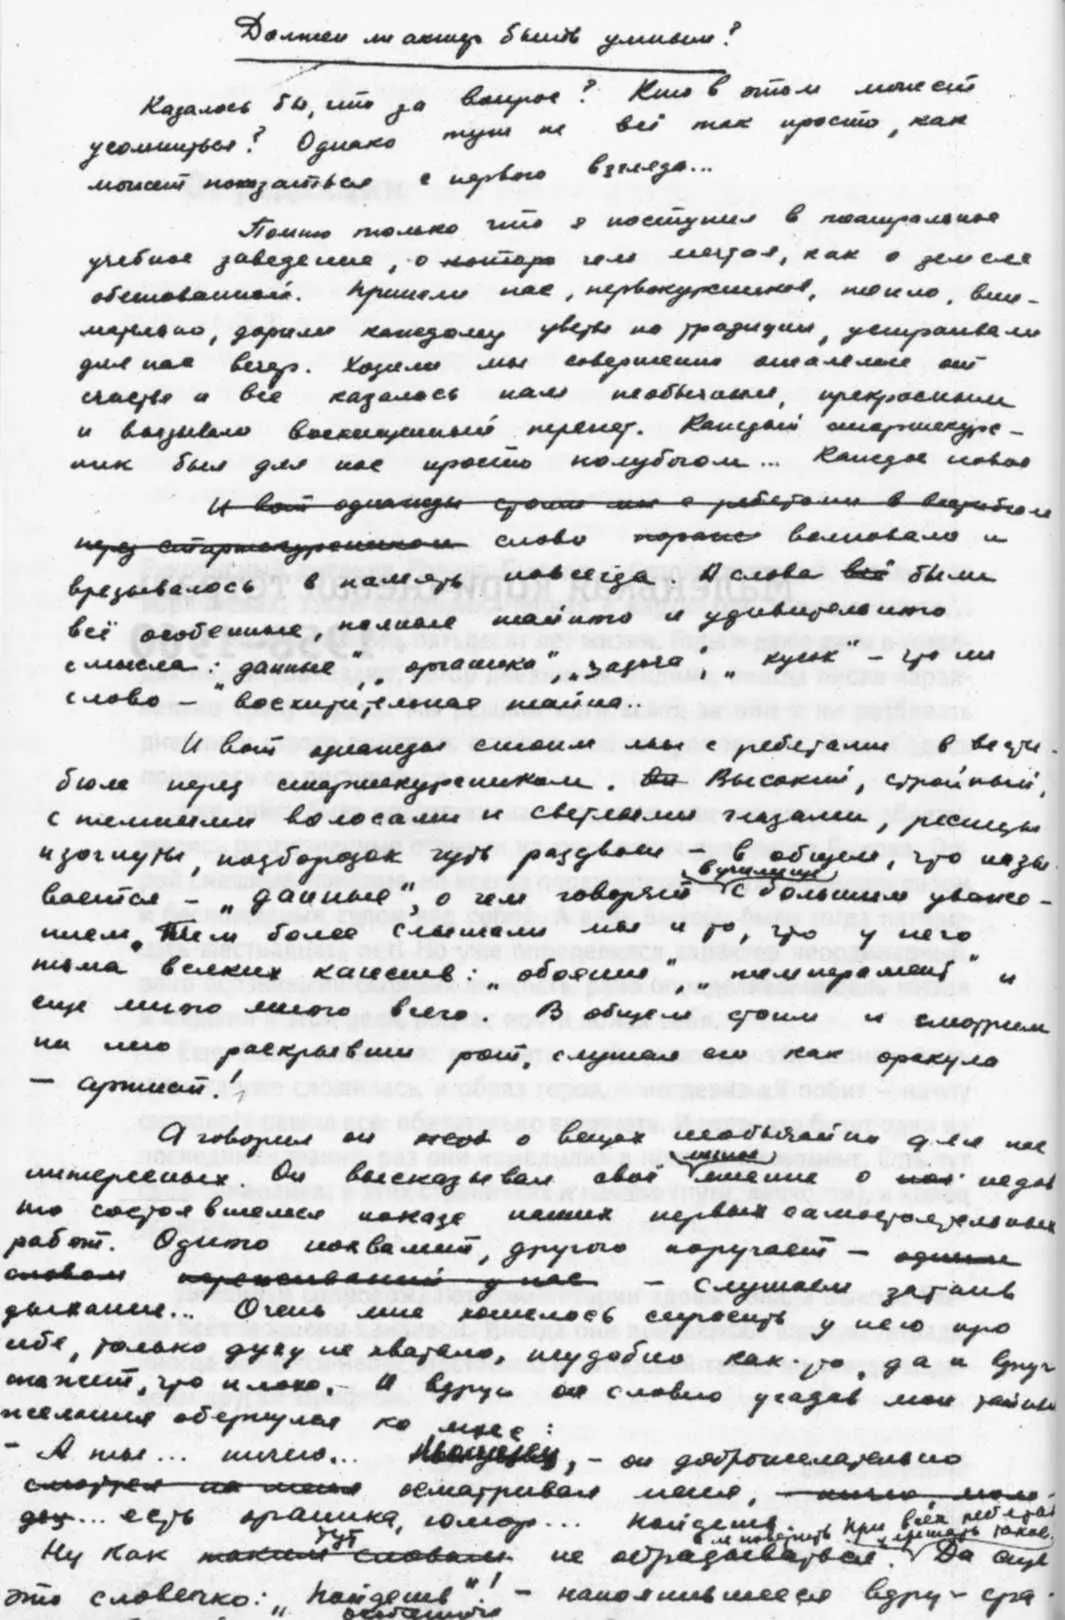 Должен ли актер быть умным?
Казалось бы, что за вопрос? Кто в этом может
усомниться? Однако тут не всё так просто, как
может показаться с первого взгляда...
Помню только что я поступил в театральное
учебное заведение, о котором мечтал, как о земле
обетованной. Приняли нас, первокурсников, тепло, вни-
мательно, дарили каждому цветы по традиции, устраивали
для нас вечер. Ходили мы совершенно ошалелые от
счастья и все казалось нам необычным, прекрасным
и вызывало восхищенный трепет. Каждый старшекурс-
ник был для нас просто полубогом... Каждое новое
И вот однажды стоим мы с ребятами в вестибюле
перед старшекурсником слово волновало и
врезывалось в память навсегда. А слова всё были
всё особенные, полные тайного и удивительного
смысла: „данные", „органика", „задача", „кусок" – что ни
слово – восхитительная тайна..
И вот однажды стоим мы с ребятами в вести-
бюле перед старшекурсником. Он Высокий, стройный,
с темными волосами и светлыми глазами, ресницы
изогнуты, подбородок чуть раздвоен – в общем, что назы-
вается – „данные", о чем говорят в училище с большим уваже-
нием. Тем более слышали мы и то, что у него
тьма всяких качеств: „обояние", „темперамент" и
еще много много всего. В общем стоим и смотрим
на него раскрывши рот, слушая его как оракула
– артист!
А говорил он о вещах необычайно для нас
интересных. Он высказывал своё личное мнение о недав
но состоявшемся показе наших первых самостоятельных
работ. Одного похвалит, другого поругает – одним
словом у нас – слушаем затаив
дыхание... Очень мне хотелось спросить у него про
себя, только духу не хватало, неудобно как-то, да и вдруг
скажет, что плохо. – И вдруг он словно угадав мои тайные
желания обернулся ко мне:
– А ты... ничего... , – он доброжелательно
смотрел на меня осматривал меня, – ничего, моло-
дец... есть органика, юмор... Пойдешь.
Ну как тут словам не обрадоваться. при всех ребятах Да еще
это словечко: „Пойдешь"! – наполнившееся вдруг